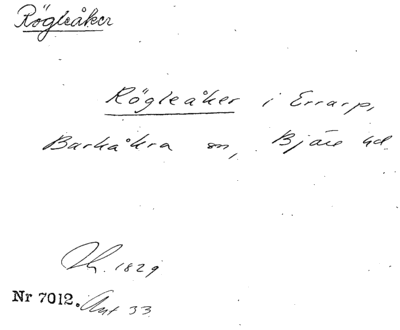 Rögleåker
Rögleåker i Errarp,
Barkåkra sn, Bjäre hd.
Th. 1829
Nr 7012. Ant 33